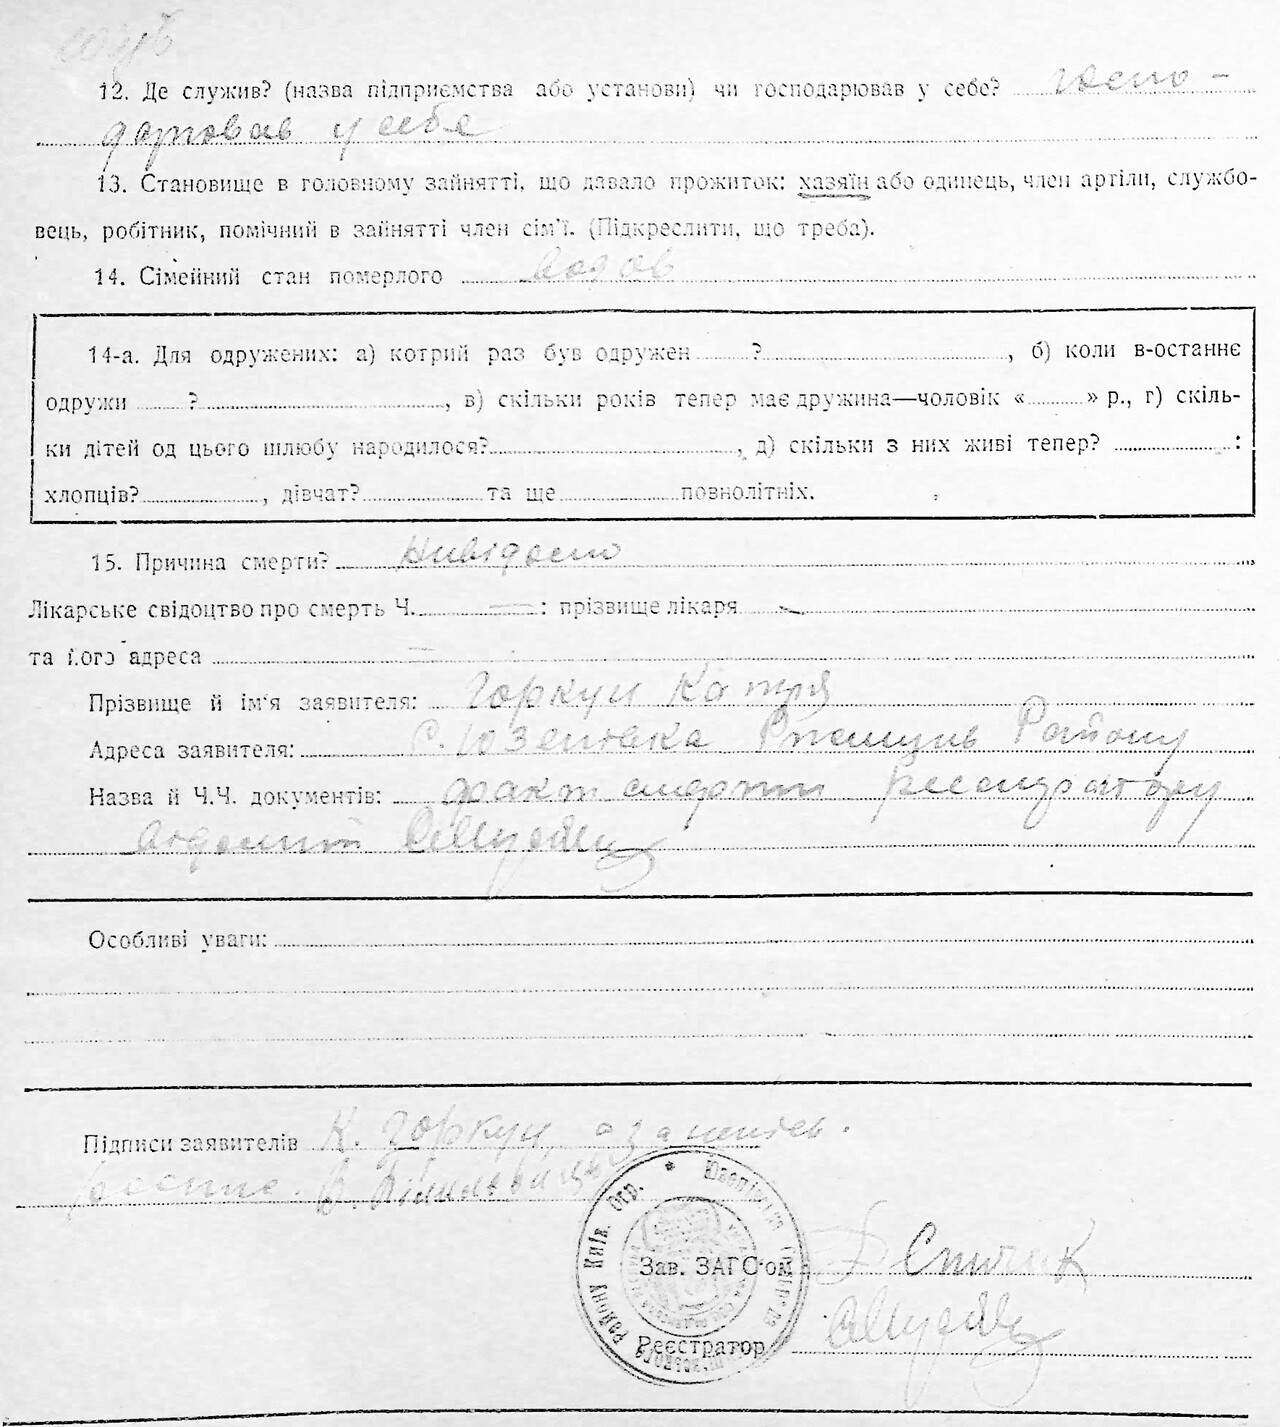 12. Де служив? (назва підприємства або установи) чи господарював у себе? госпо-
дарював у себе
13. Становище в головному зайнятті, що давало прожиток: хазяїн або одинець, член артіли, службо-
вець, робітник, помічний в зайнятті член сім'ї. (Підкреслити, що треба).
14. Сімейний стан померлого вдов
14-а. Для одружених: а) котрий раз був одружен ? , б) коли в-останнє
одружи ? , в) скільки років тепер має дружина—чоловік « » р., г) скіль-
ки дітей од цього шлюбу народилося? , д) скільки з них живі тепер? :
хлопців? , дівчат? та ще повнолітніх.
15. Причина смерти? Нивідомо
Лікарське свідоцтво про смерть Ч. — : прізвище лікаря —
та його адреса —
Прізвище й ім'я заявителя: Горкун Катря
Адреса заявителя: с. Юзепівка Ржищів Району
Назва й Ч.Ч. документів: факт смерти реєстратору
відомий
Особливі уваги:
Підписи заявителів К. Горкун, а за неписьм.
роспис. В.
Юзепівська Сільрада
району Київ. Окр.
Зав. ЗАГС'ом Спичак
Реєстратор